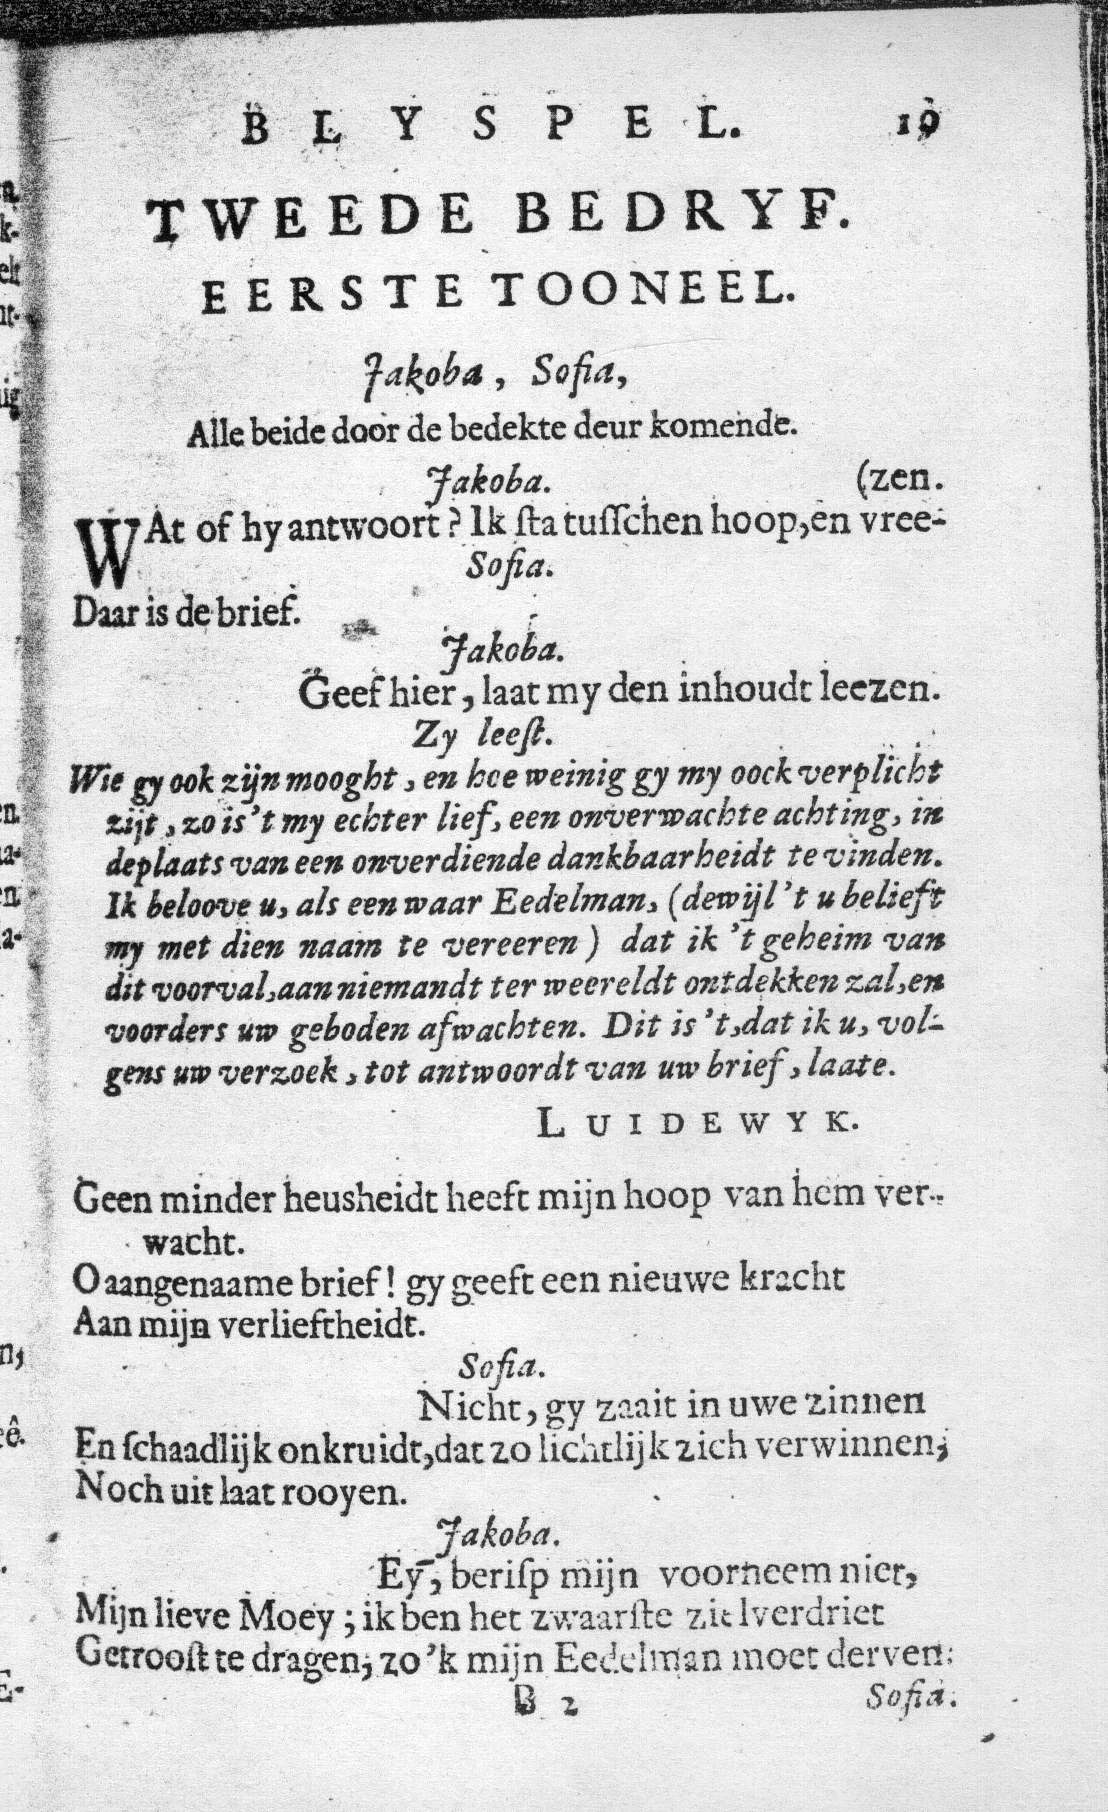 BLYSPEL. 19
TWEEDE BEDRYF.
EERSTE TOONEEL.
Jakoba, Sofia,
Alle beide door de bedekte deur komende.
Jakoba. (zen.
WAt of hy antwoort? Ik ſta tuſſchen hoop, en vree-
Sofia.
Daar is de brief.
Jakoba.
Geef hier, laat my den inhoudt leezen.
Zy leeſt.
Wie gy ook zijn mooght, en hoe weinig gy my oock verplicht
zijt, zo is 't my echter lief, een onverwachte achting, in
de plaats van een onverdiende dankbaarheidt te vinden.
Ik beloove u, als een waar Eedelman, (dewijl 't u belieft
my met dien naam te vereeren) dat ik 't geheim van
dit voorval, aan niemandt ter weereldt ontdekken zal, en
voorders uw geboden afwachten. Dit is 't, dat ik u, vol-
gens uw verzoek, tot antwoordt van uw brief, laate.
LUIDEWYK.
Geen minder heusheidt heeft mijn hoop van hem ver-
wacht.
O aangenaame brief! gy geeft een nieuwe kracht
Aan mijn verlieftheidt.
Sofia.
Nicht, gy zaait in uwe zinnen
En ſchaadlijk onkruidt, dat zo lichtlijk zich verwinnen;
Noch uit laat rooyen.
Jakoba.
Ey, beriſp mijn voorneem niet,
Mijn lieve Moey; ik ben het zwaarſte zielverdriet
Getrooſt te dragen; zo 'k mijn Eedelman moet derven:
B 2 Sofia.